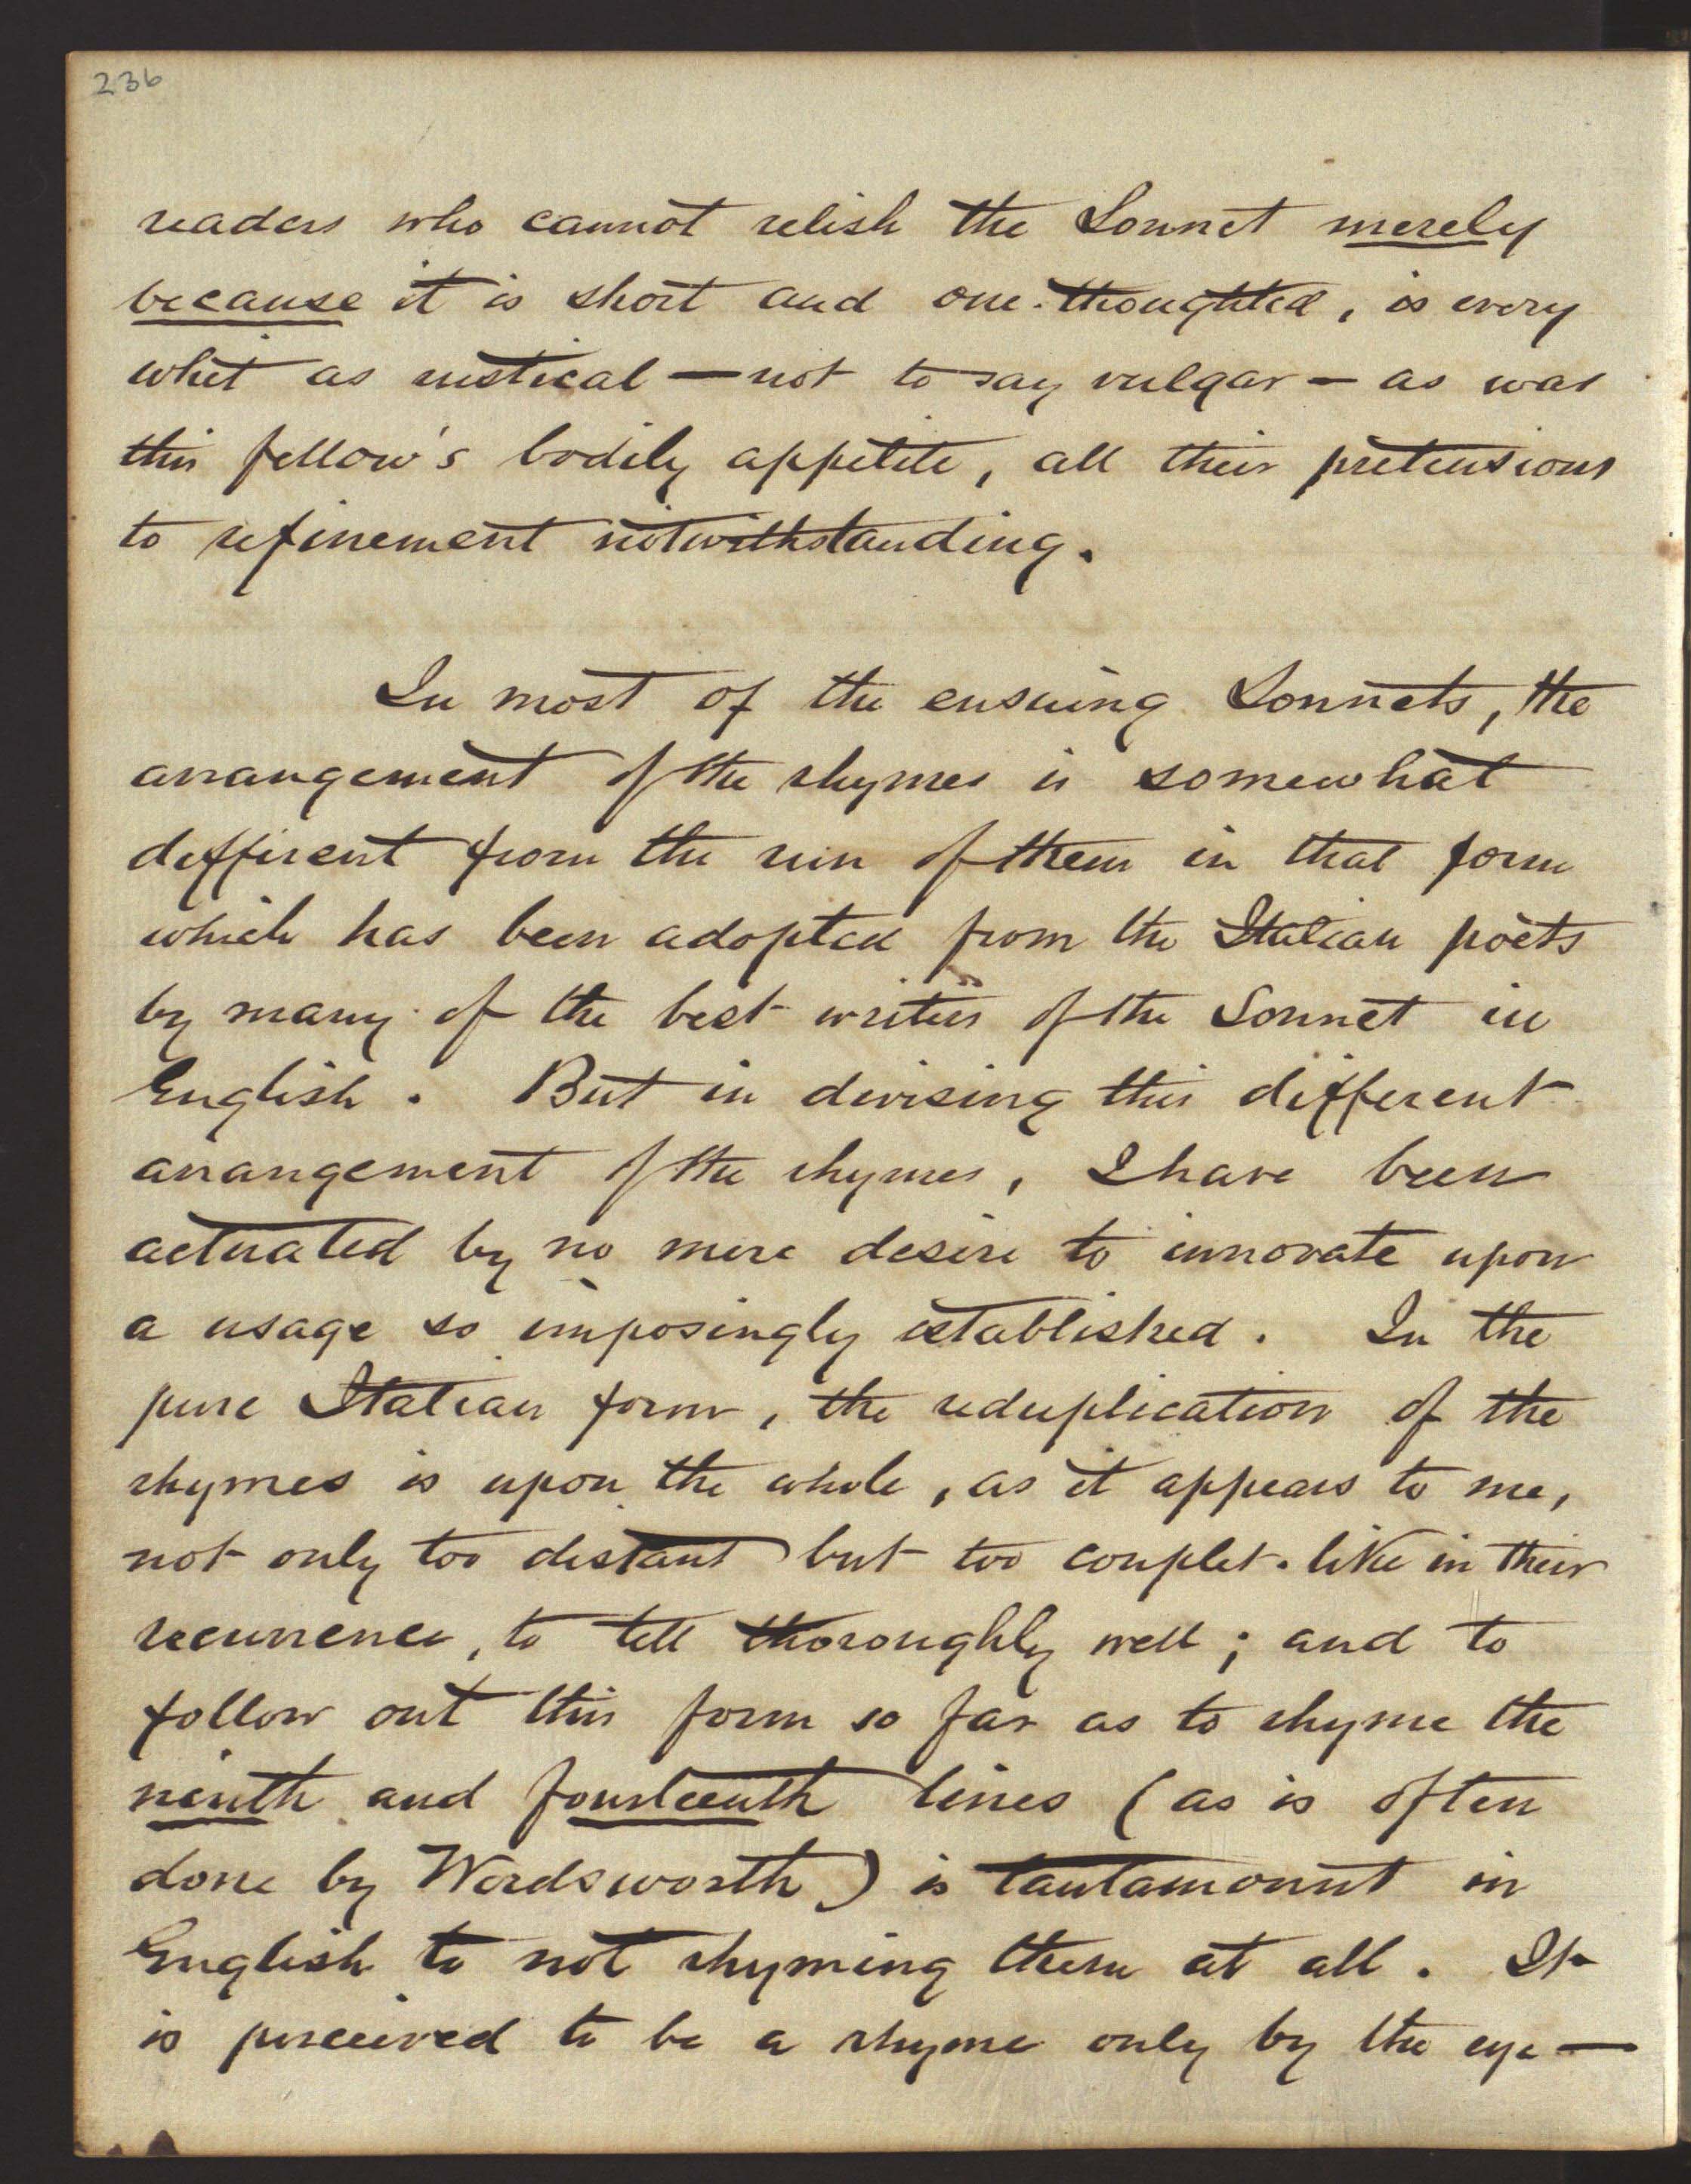 236
readers who cannot relish the Sonnet merely
because it is short and one-thoughted, is every
whit as rustical — not to say vulgar — as was
this fellow's bodily appetite, all their pretensions
to refinement notwithstanding.
In most of the ensuing Sonnets, the
arrangement of the rhymes is somewhat
different from the run of them in that form
which has been adopted from the Italian poets
by many of the best writers of the Sonnet in
English. But in devising this different
arrangement of the rhymes, I have been
actuated by no mere desire to innovate upon
a usage so imposingly established. In the
pure Italian form, the reduplication of the
rhymes is upon the whole, as it appears to me,
not only too distant but too couplet-like in their
recurrence, to tell thoroughly well; and to
follow out this form so far as to rhyme the
ninth and fourteenth lines (as is often
done by Wordsworth) is tantamount in
English to not rhyming them at all. It
is perceived to be a rhyme only by the eye —